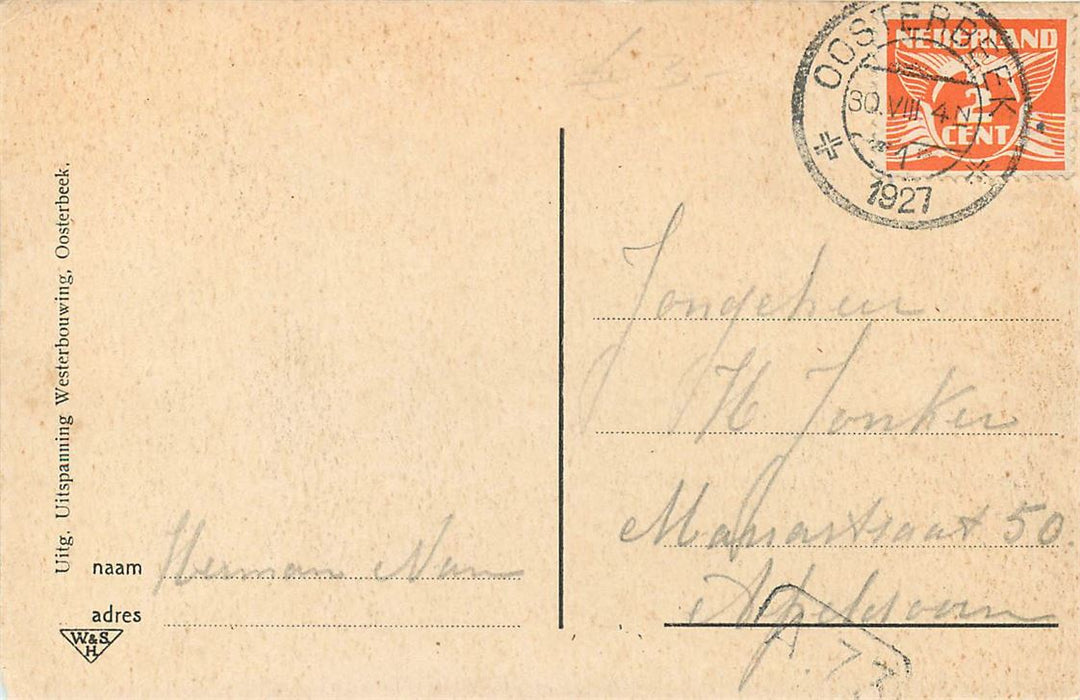 Uitg. Uitspanning Westerbouwing, Oosterbeek.
naam Herman
adres
W.&S.
H.
OOSTERBEEK
30.VIII.4 N
1
1927
NEDERLAND
2
CENT
Jongeheer
H Jonker
Mariastraat 50.
Apeldoorn
A 77